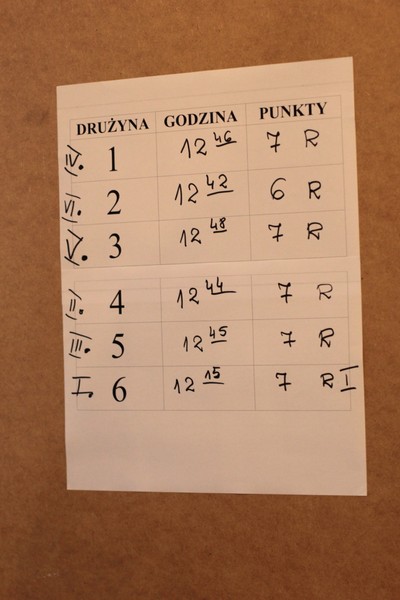 DRUŻYNA GODZINA PUNKTY
IV. 1 12 46 7 R
VI. 2 12 42 6 R
V. 3 12 48 7 R
II. 4 12 44 7 R
III. 5 12 45 7 R
I. 6 12 15 7 R I